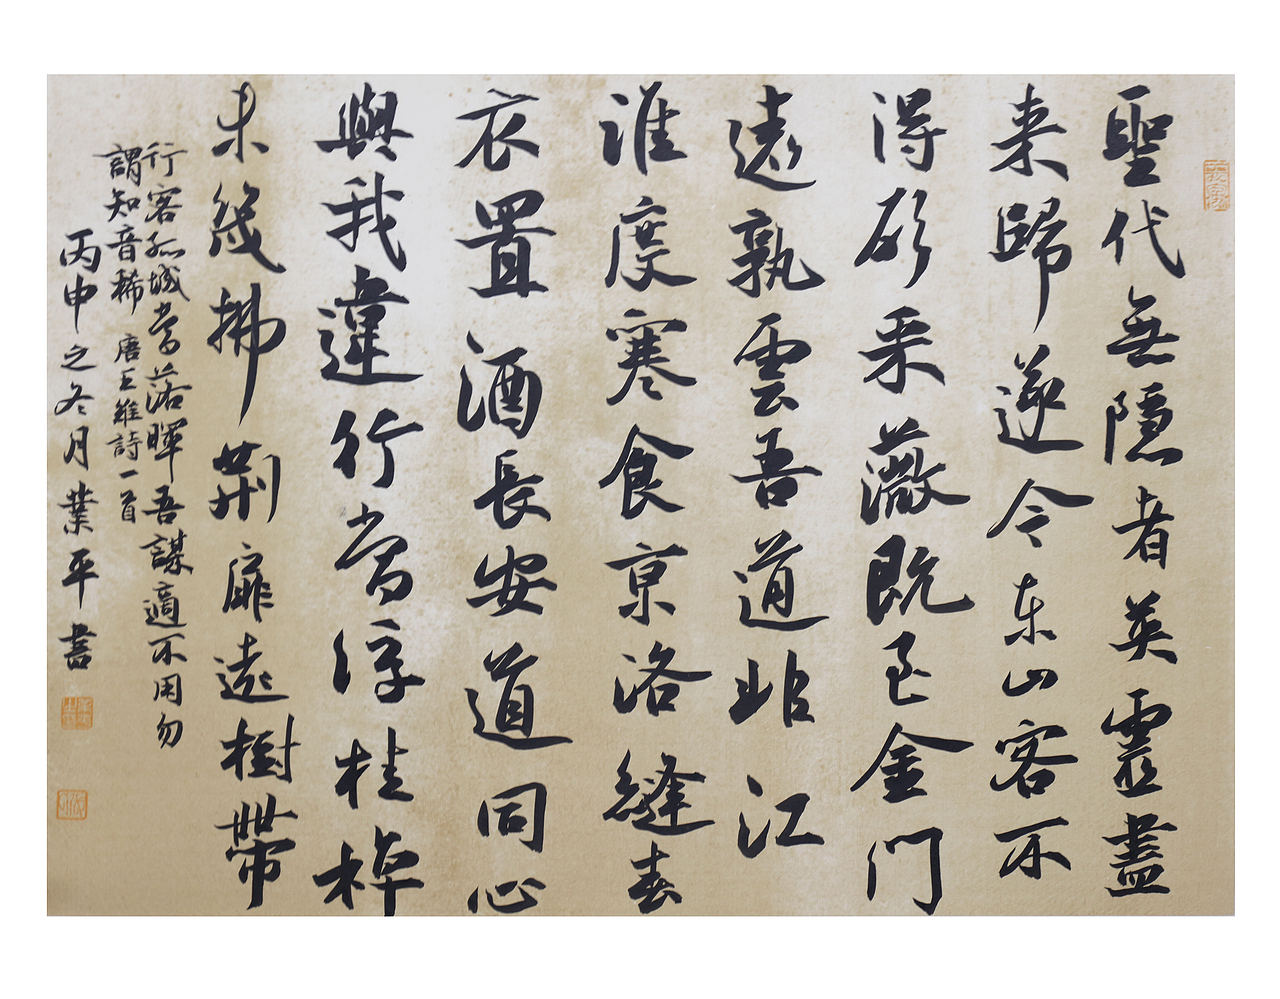 聖代無隱者英靈盡
来歸遂令东山客不
得顧采薇既至金門
遠孰雲吾道非江
淮度寒食京洛縫春
衣置酒長安道同心
與我違行當浮桂棹
未幾拂荆扉遠樹帶
行客孤城當落暉吾謀適不用勿
謂知音稀 唐王維詩一首
丙申之冬月業平書